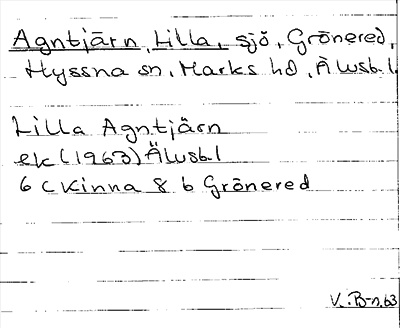 Agntjärn, Lilla, sjö, Grönered,
Hyssna sn, Marks hd, Älvsb.l.
Lilla Agntjärn
ek (1963) Älvsb.l
6 c Kinna 8 b Grönered
V. B-n, 63